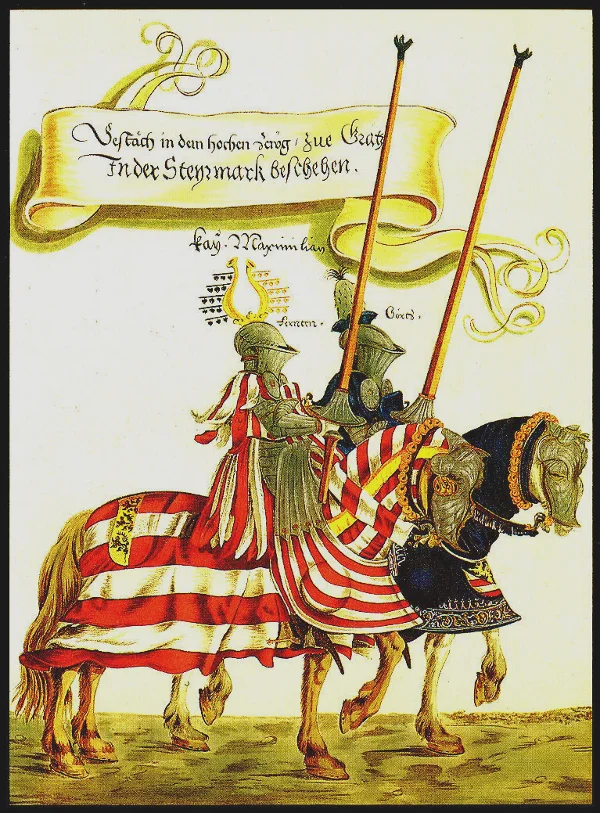 Gestäch in dem hohen Zeug, zue Grätz
In der Steyrmark beschehen.
Kay. Maximilian
Görtz.